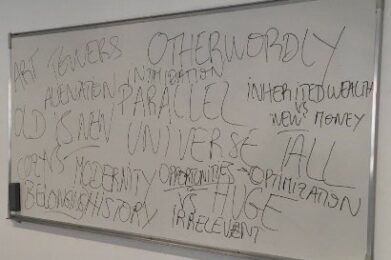 ART TOWERS
OTHERWORDLY
ALIENATION
INTIMIDATION
PARALLEL
UNIVERSE
INHERITED WEALTH
VS
"NEW" MONEY
OLD IS NEW
VS MODERNITY
BELONGING
HISTORY
OPPORTUNITIES
OPTIMIZATION
TALL
HUGE
VS
IRRELEVENT